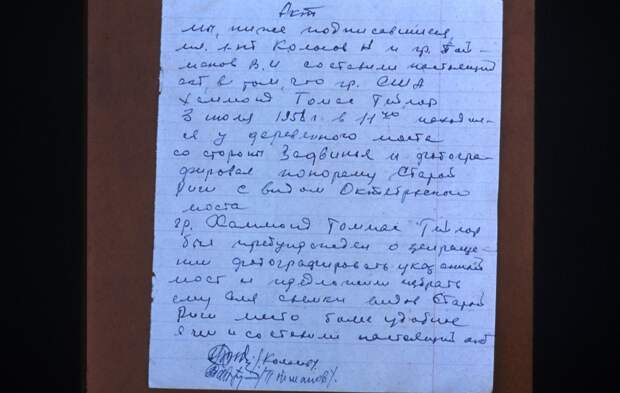 Акт
мы, ниже подписавшиеся,
мл. л-нт Колосов Н и гр.
В.И составили настоящий
акт, в том, что гр. США
Хаммонд Томас Тейлор
3 июля 1958 г. в 11 находил-
ся у деревянного моста
со стороны Задвинья и фотогра-
фировал панораму Старой
Риги с видом Октябрьского
моста
гр. Хаммонд Томмас Тейлор
был предупрежден о запреще-
нии фотографировать указанный
мост и предложили избрать
ему для съемки видов Старой
Риги место более удобное
о чем и составили настоящий акт